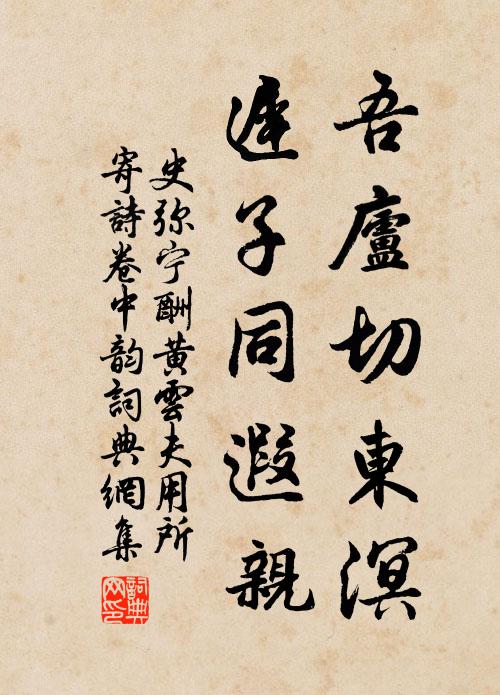 吾廬切東溟
遲子同遐親
史弥宁酬黄雲夫用所
寄詩卷中韵詞典網集
詞典
网印